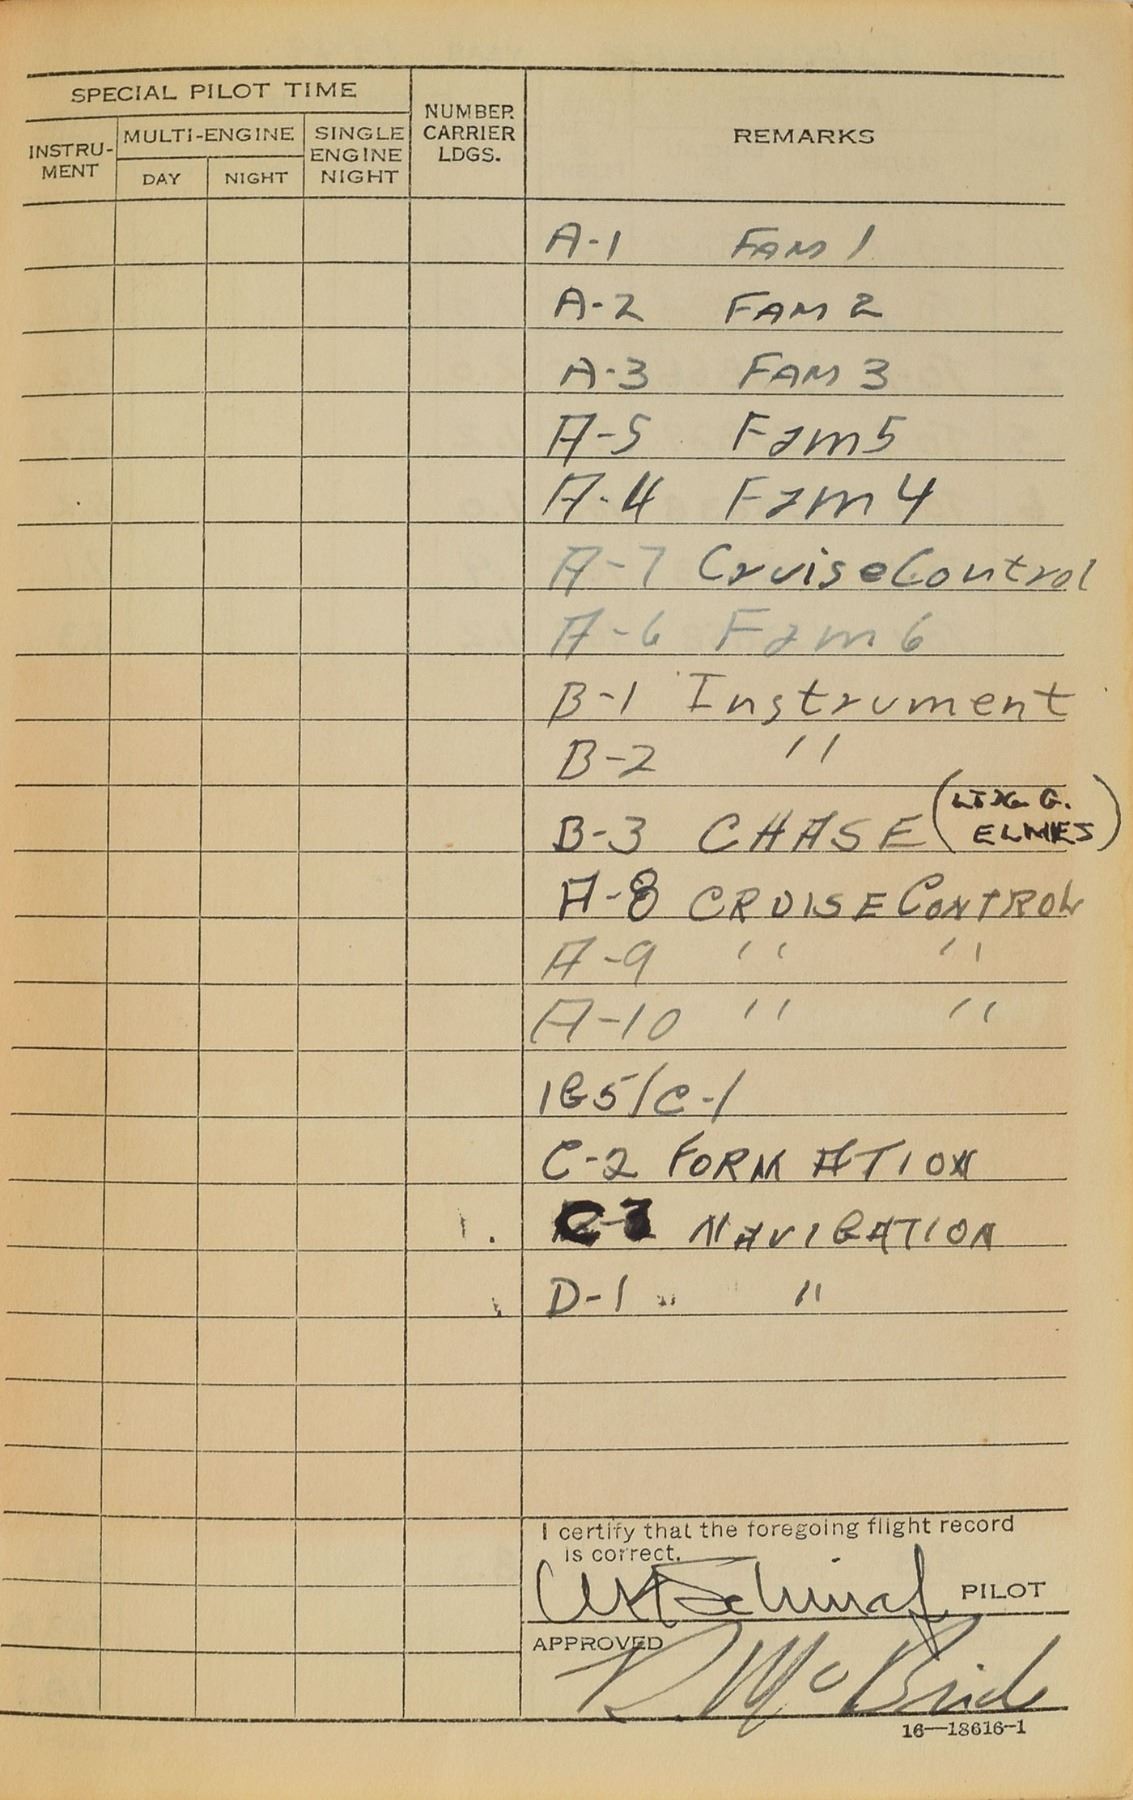 SPECIAL PILOT TIME
NUMBER CARRIER LDGS.
REMARKS
INSTRU-MENT
MULTI-ENGINE
SINGLE ENGINE NIGHT
DAY
NIGHT
A-1 FAM 1
A-2 FAM 2
A-3 FAM 3
A-5 Fam 5
A-4 Fam 4
A-7 Cruise Control
A-6 Fam 6
B-1 Instrument
B-2 "
B-3 CHASE (G. ELMES)
A-8 CRUISE CONTROL
A-9 " "
A-10 " "
1G5/C-1
C-2 FORMATION
C-3 NAVIGATION
D-1 " "
I certify that the foregoing flight record
is correct.
PILOT
APPROVED
R McBride
16—18616-1